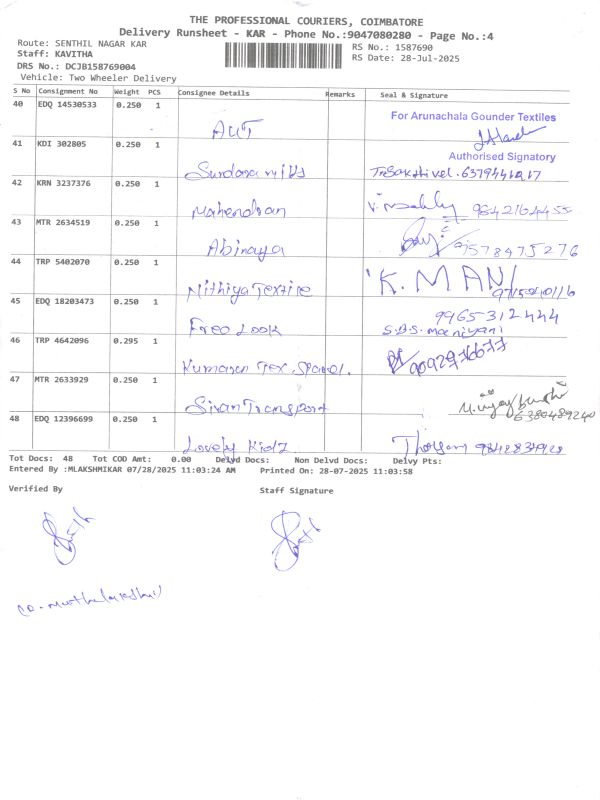 THE PROFESSIONAL COURIERS, COIMBATORE
Delivery Runsheet - KAR - Phone No.:9047080280 - Page No.:4
Route: SENTHIL NAGAR KAR
Staff: KAVITHA
RS No.: 1587690
RS Date: 28-Jul-2025
DRS No.: DCJB158769004
Vehicle: Two Wheeler Delivery
S No Consignment No Weight PCS Consignee Details Remarks Seal & Signature
40 EDQ 14530533 0.250 1
AUT
For Arunachala Gounder Textiles
Authorised Signatory
41 KDI 302805 0.250 1
42 KRN 3237376 0.250 1
Mahendran
9842164455
43 MTR 2634519 0.250 1
Abinaya
9578475276
44 TRP 5402070 0.250 1
Nithiya Textile
K. MANI
45 EDQ 18203473 0.250 1
Free Look
9965312444
S.B.S. maniyani
46 TRP 4642096 0.295 1
Kumaran Tex
47 MTR 2633929 0.250 1
Sivan Transport
6380489240
48 EDQ 12396699 0.250 1
Lovely Kidz
Tot Docs: 48 Tot COD Amt: 0.00 Delvd Docs: Non Delvd Docs: Delvy Pts:
Entered By :MLAKSHMIKAR 07/28/2025 11:03:24 AM Printed On: 28-07-2025 11:03:58
Verified By
Staff Signature